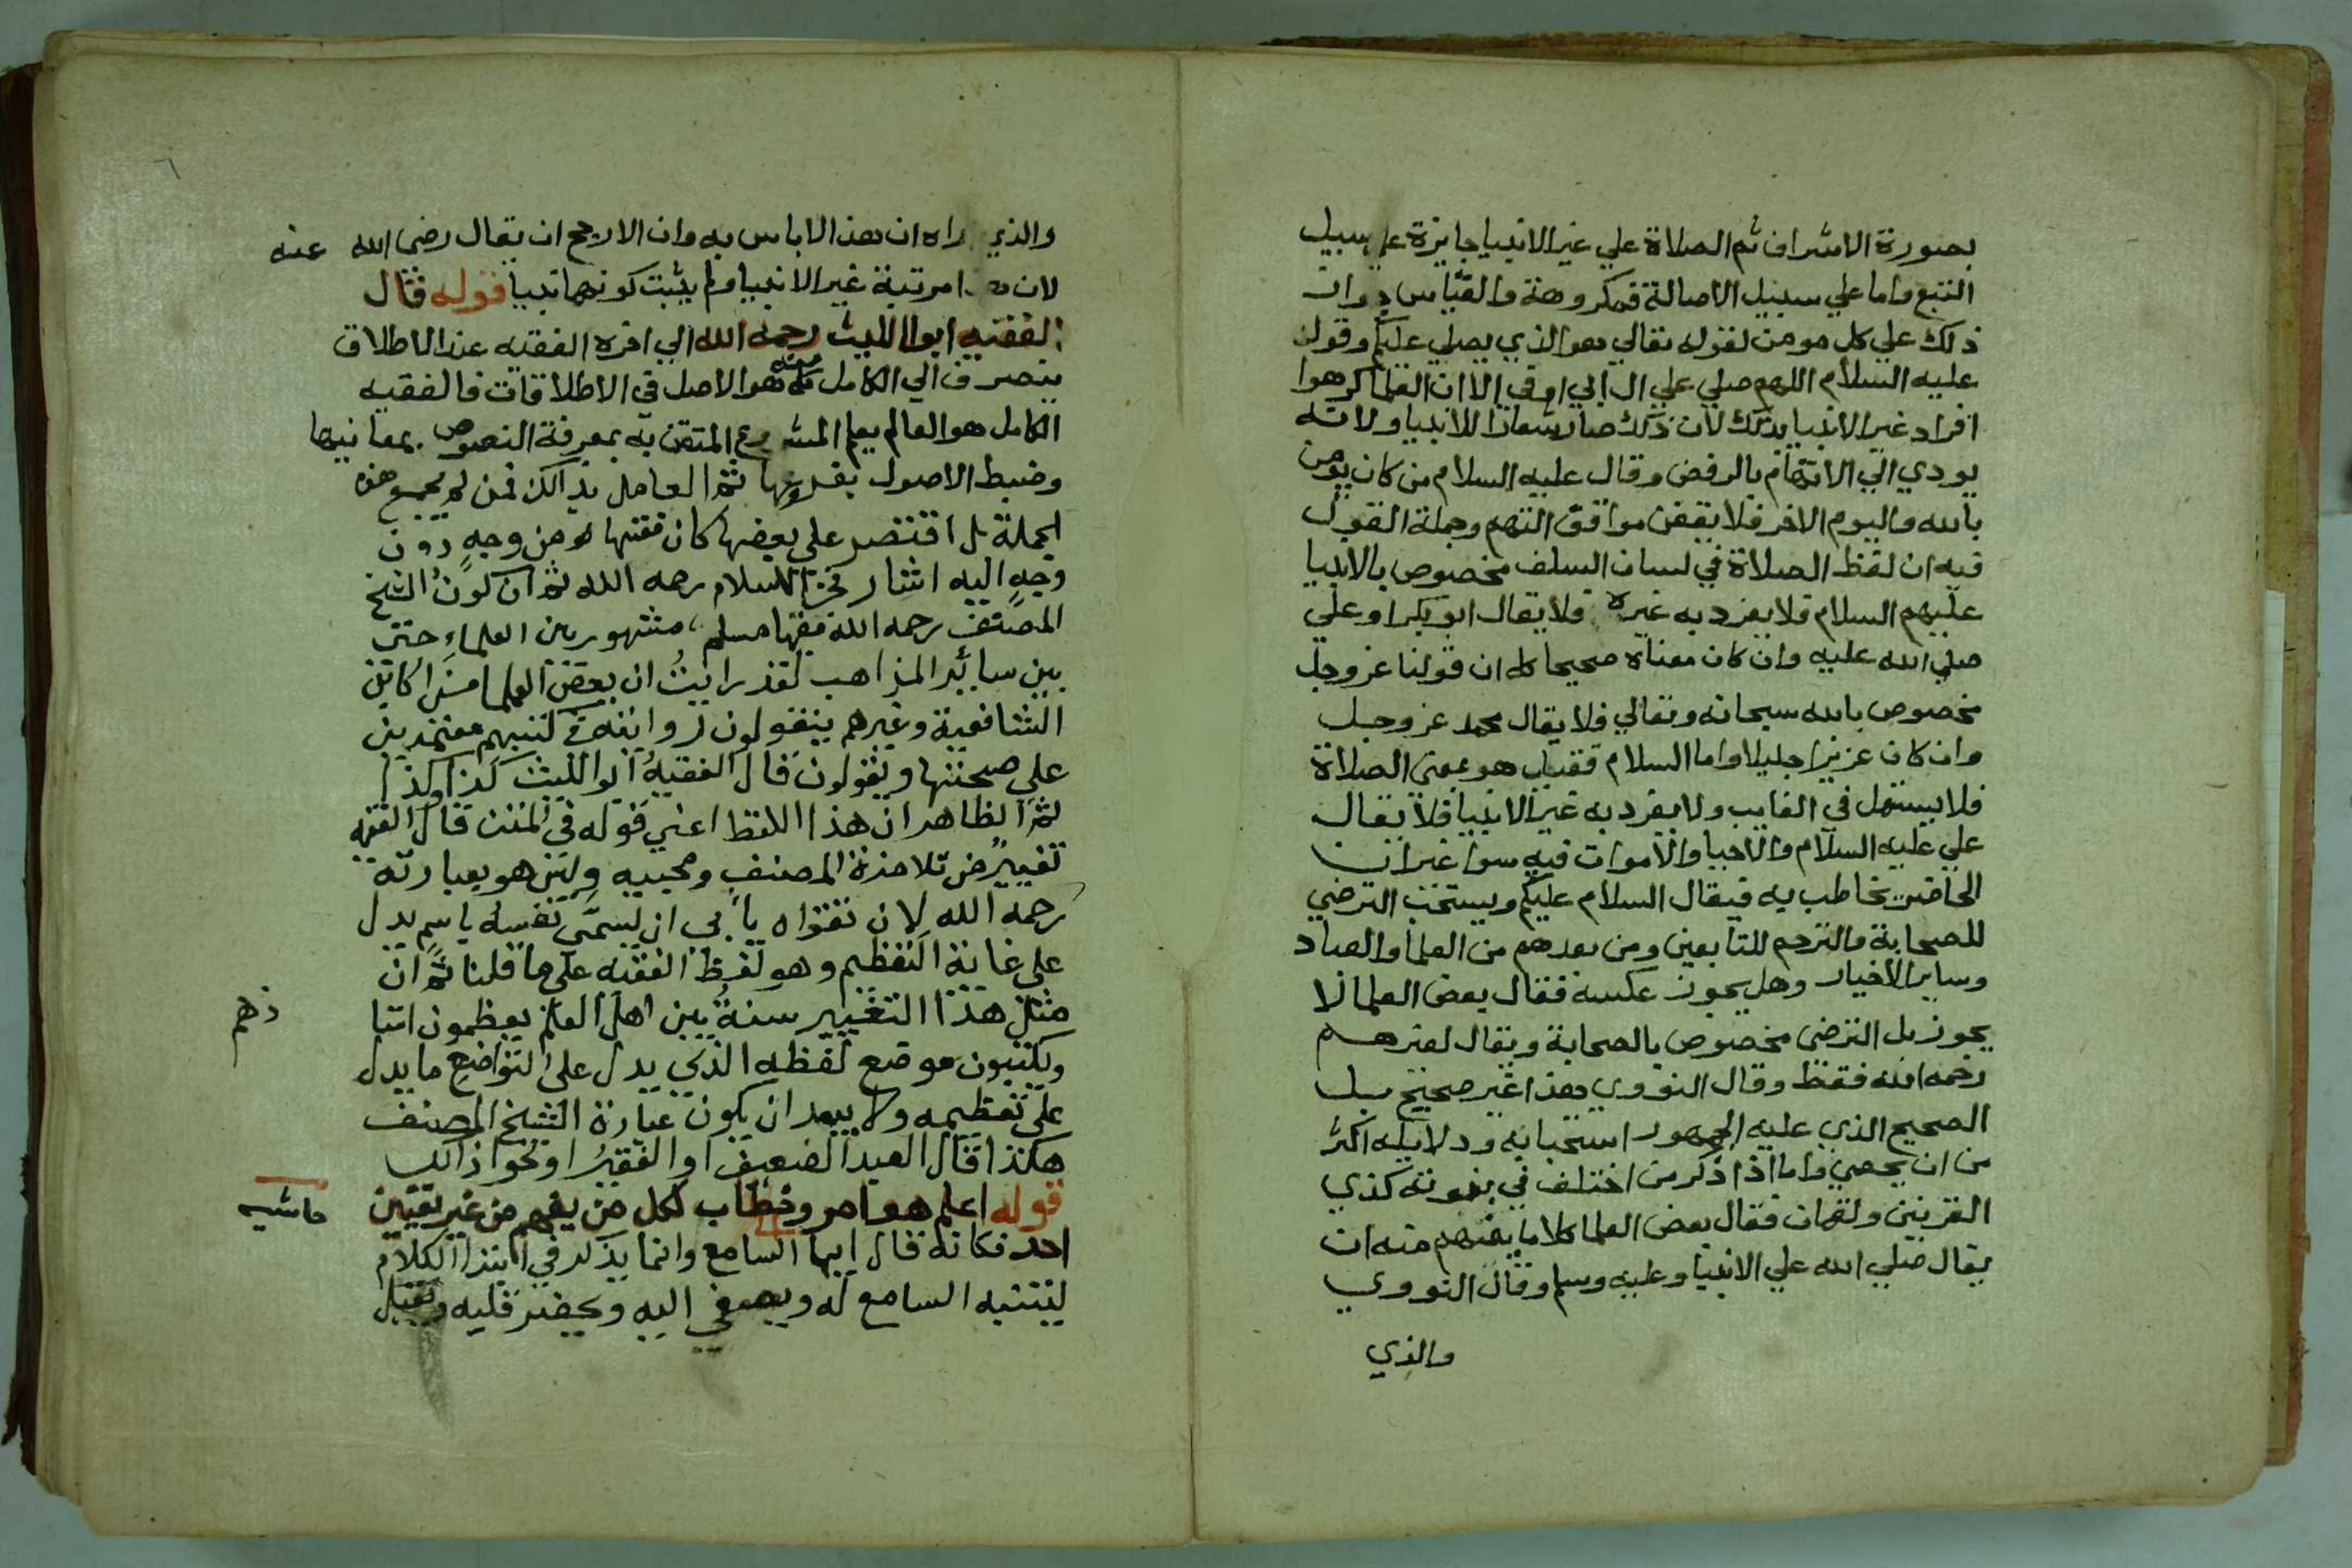 بصورة الاشراف ثم الصلاة علي غير الانبيا جايزة علي سبيل
التبع واما علي سبيل الاصالة فمكروهة والقياس جواز
ذلك علي كل مومن لقوله تعالي هو الذي يصلي عليكم وقوله
عليه السلام اللهم صلي علي ال ابي اوفي الا ان العلما كرهوا
افراد غير الانبيا بذلك لان ذلك صار شعارا للانبيا ولانه
يودي الي الاتهام بالرفض وقال عليه السلام من كان يومن
بالله واليوم الاخر فلا يقفن مواقف التهم وجملة القول
فيه ان لفظ الصلاة في لسان السلف مخصوص بالانبيا
عليهم السلام فلا يفرد به غيره فلا يقال ابو بكر او علي
صلي الله عليه وان كان معناه صحيحا كما ان قولنا عز وجل
مخصوص بالله سبحانه وتعالي فلا يقال محمد عز وجل
وان كان عزيزا جليلا واما السلام فقيل هو بمعني الصلاة
فلا يستعمل في الغايب ولا يفرد به غير الانبيا فلا يقال
علي عليه السلام والاحيا والاموات فيه سوا غير ان
الحاضر يخاطب به فيقال السلام عليكم ويستحب الترضي
للصحابة والترحم للتابعين ومن بعدهم من العلما والعباد
وساير الاخيار وهل يجوز عكسه فقال بعض العلما لا
يجوز بل الترضي مخصوص بالصحابة ويقال لغيرهم
رحمه الله فقط وقال النووي هذا غير صحيح بل
الصحيح الذي عليه الجمهور استحبابه ودلايله اكثر
من ان يحصي واما اذا ذكر من اختلف في نبوته كذي
القرنين ولقمان فقال بعض العلما كلاما يفهم منه ان
يقال صلي الله علي الانبيا وعليه وسلم وقال النووي
والذي
والذي اراه ان هذا لا باس به وان الارجح ان يقال رضي الله عنه
لان مرتبة غير الانبيا ولم يثبت كونهما نبيا قوله قال
الفقيه ابو الليث رحمه الله الي اخره الفقيه عند الاطلاق
ينصرف الي الكامل منه هو الاصل في الاطلاقات فالفقيه
الكامل هو العالم بعلم المشروع المتقن به بمعرفة النصوص بمعانيها
وضبط الاصول بفروعها ثم العامل بذالك فمن لم يجمع هذه
الجملة بل اقتصر علي بعضها كان فقيها من وجه دون
وجه اليه اشار فخر الاسلام رحمه الله ثم ان كون الشيخ
المصنف رحمه الله فقيها مسلم، مشهور بين العلماء حتى
بين سائر المذاهب لقد رايت ان بعض العلما من اكابر
الشافعية وغيرهم ينقولون روايته في كتبهم معتمدين
علي صحتها ويقولون قال الفقيه ابو الليث كذا وكذا
ثم الظاهر ان هذا اللفظ اعني قوله في المتن قال الفقيه
تغيير من تلامذة المصنف ومحبيه وليس هو بعبارته
رحمه الله لان تقواه يأبي ان يسمى نفسه باسم يدل
علي غاية التعظيم وهو لفظ الفقيه علي ما قلنا ثم ان
مثل هذا التغيير سنة بين اهل العلم يعظمون استا
ذهم
ويكتبون موضع لفظه الذي يدل على التواضع ما يدل
علي تعظيمه ولا يبعد ان يكون عبارة الشيخ المصنف
هكذا قال العبد الضعيف او الفقير او نحو ذالك
قوله اعلم هو امر وخطاب لكل من يفهم من غير تعيين
حاشيه
احد فكانه قال ايها السامع وانما يذكر في ابتدا الكلام
ليتنبه السامع له ويصغي اليه ويحضر قلبه ويقبل